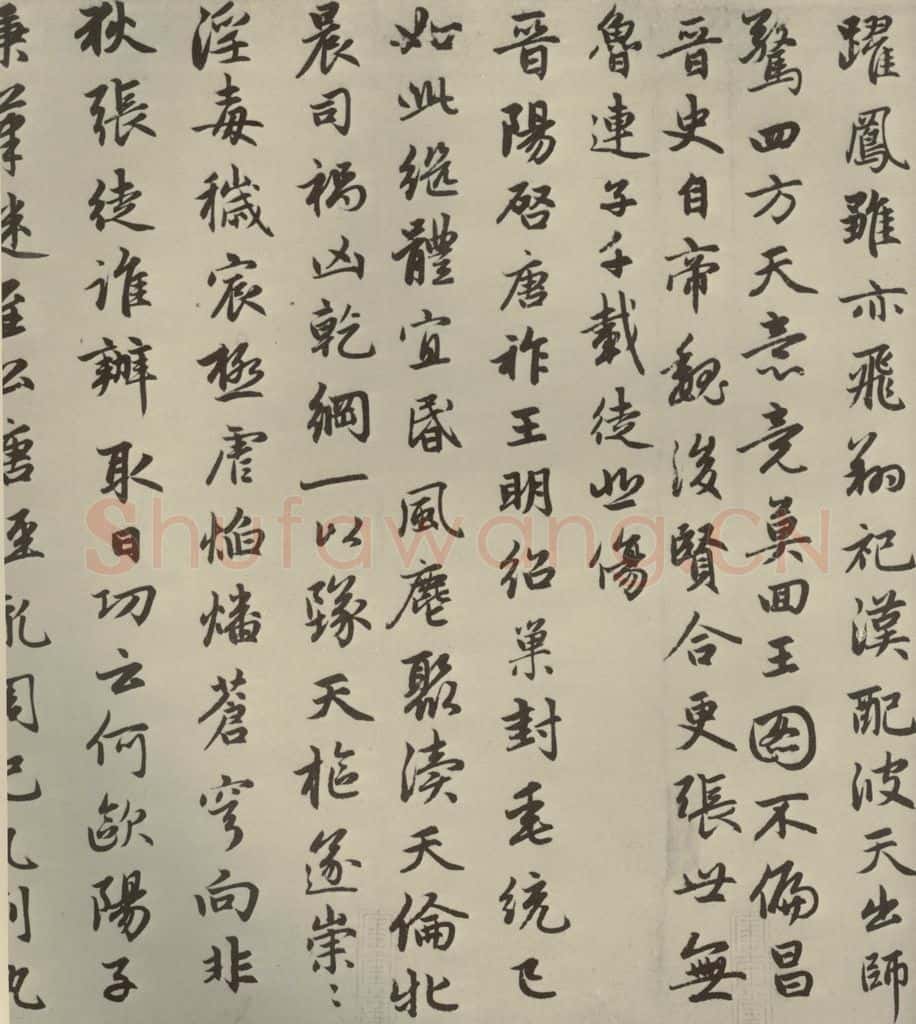 躍鳳雛亦飛翔祀漢配彼天出師
驚四方天意竟莫回王圖不偏昌
晉史自帝魏後賢合更張世無
魯連子千載徒悲傷
晉陽啓唐祚王明紹巢封垂統已
如此繼體宜昏風塵聚瀆天倫牝
晨司禍凶乾綱一以墜天樞遂崇〻
淫毒穢宸極虐焰燔蒼穹向非
狄張徒誰辦取日功云何歐陽子
秉筆迷至公唐經亂周紀凡例
Shufawang.CN